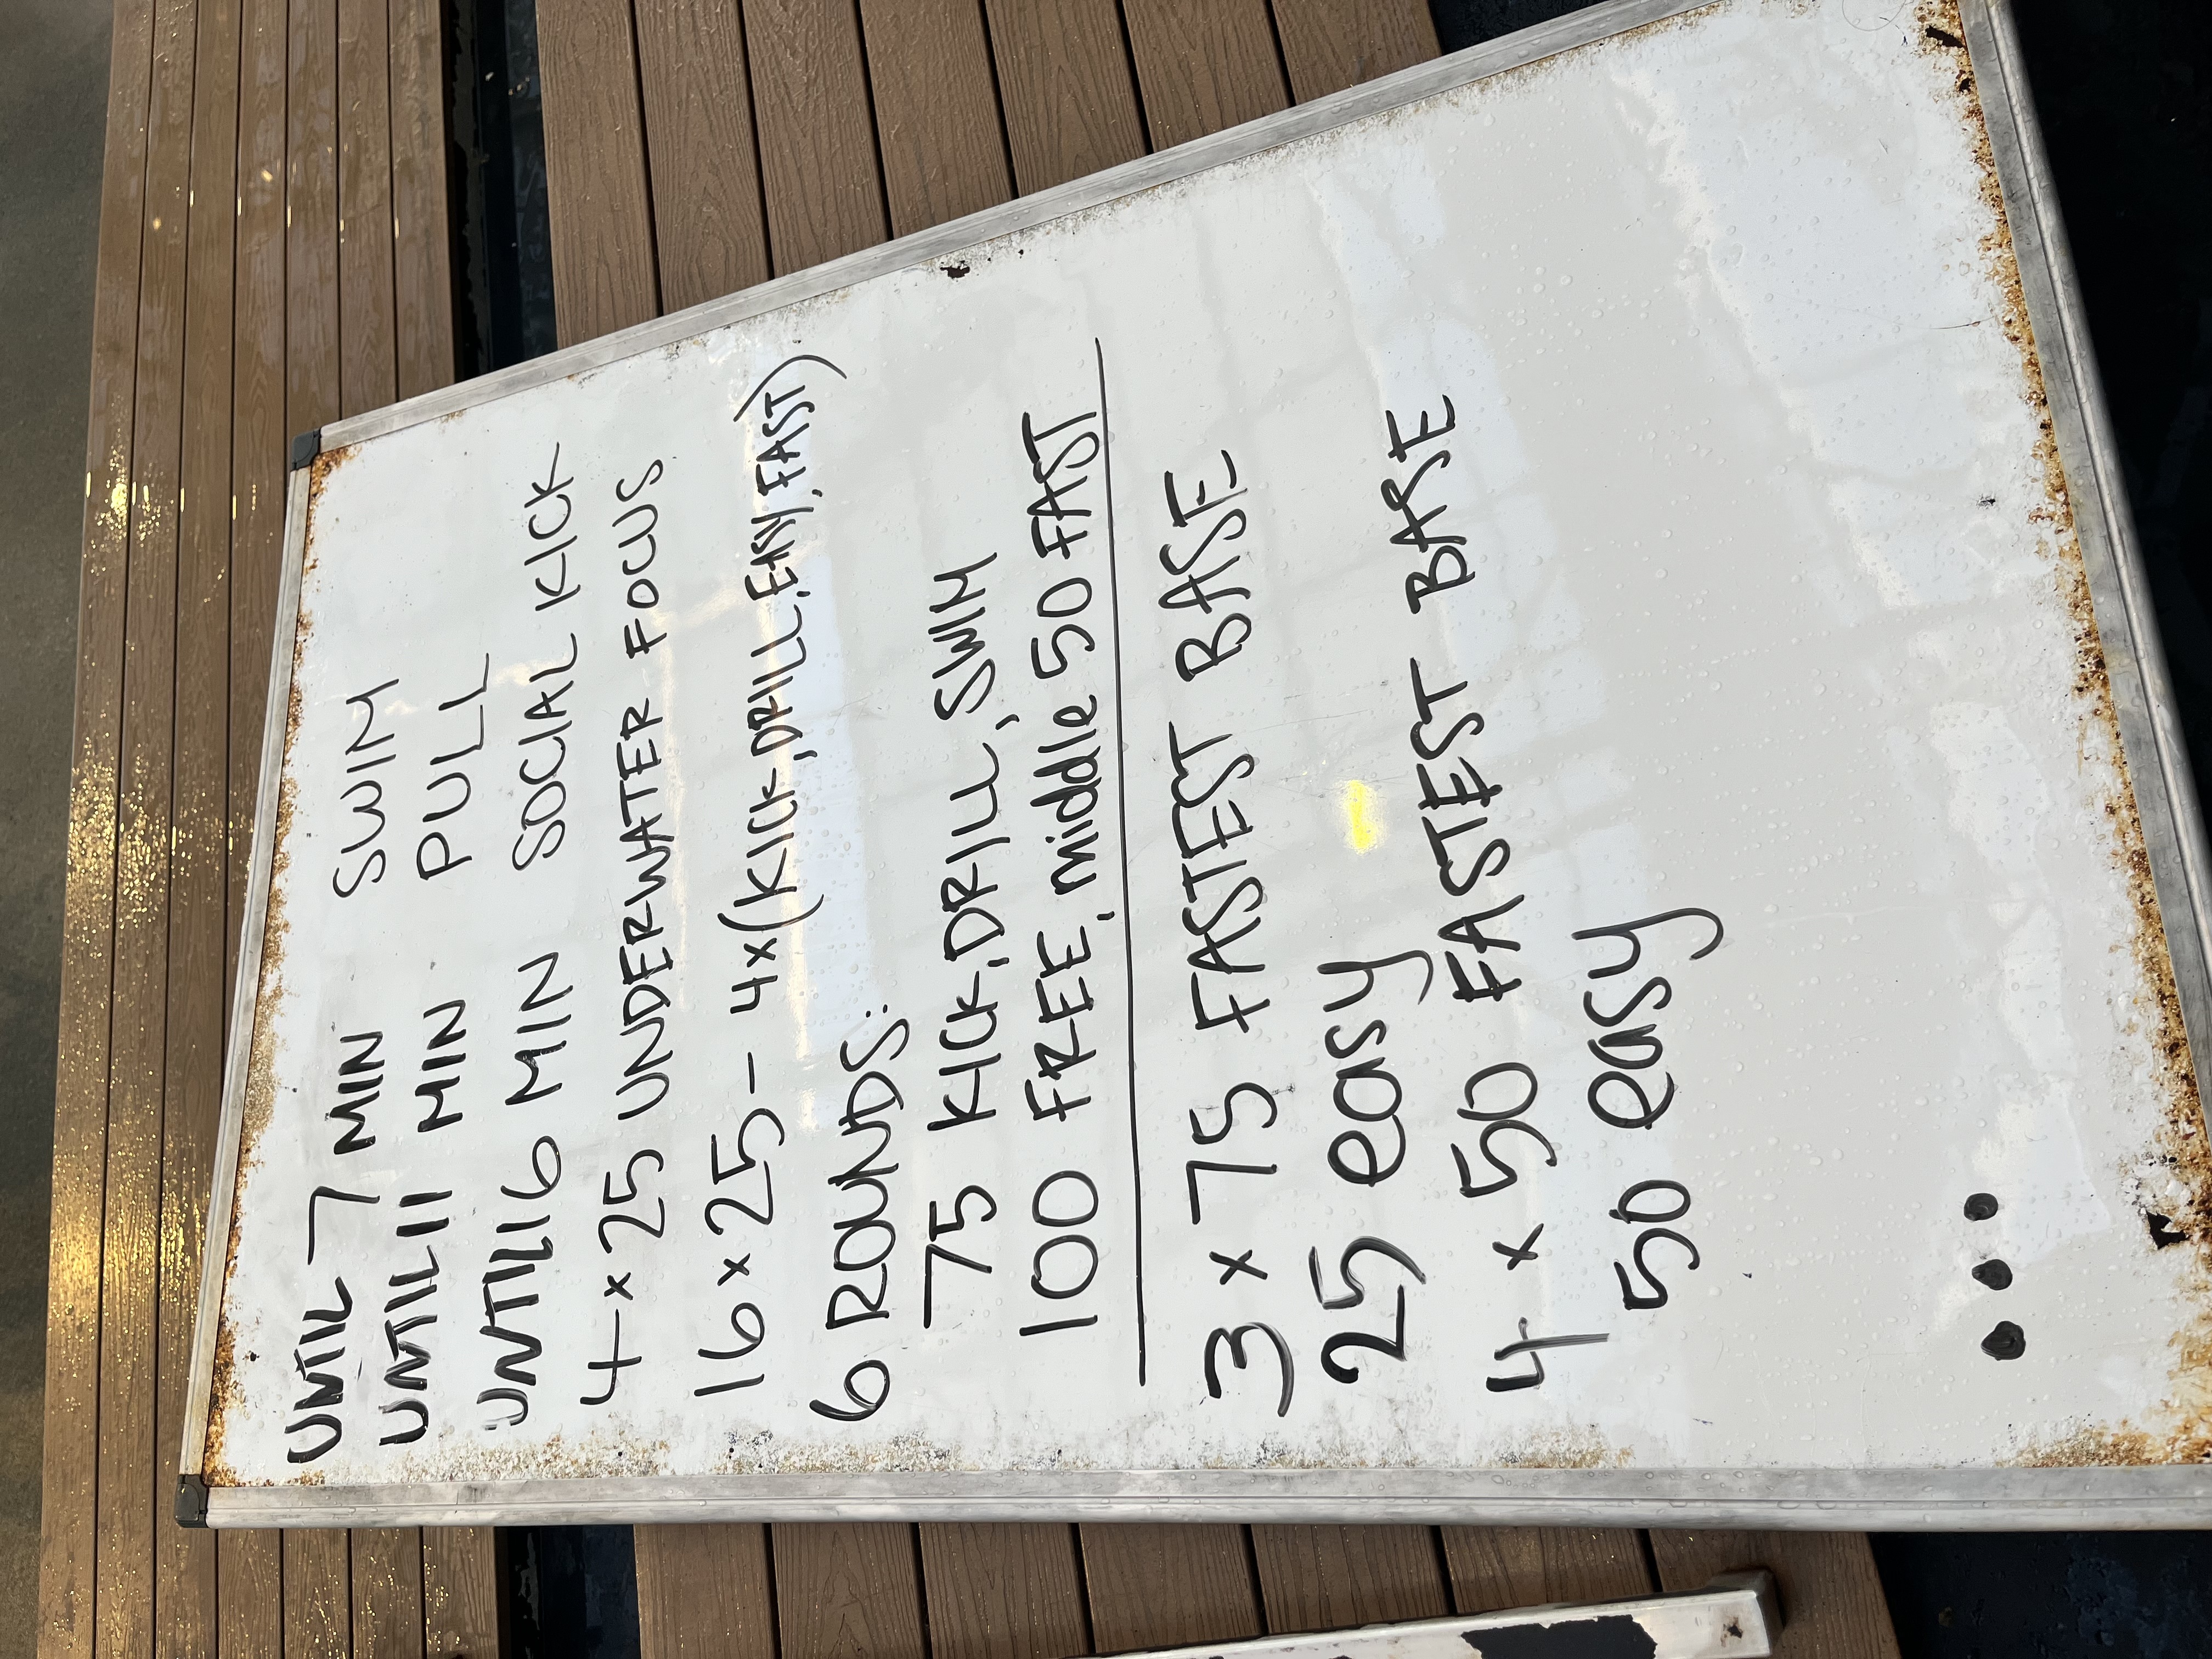 UNTIL 7 MIN SWIM
UNTIL 11 MIN PULL
UNTIL 16 MIN SOCIAL KICK
4 x 25 UNDERWATER FOCUS
16 x 25 - 4x(KICK, DRILL, EASY, FAST)
6 ROUNDS:
75 KICK, DRILL, SWIM
100 FREE, middle 50 FAST
3 x 75 FASTEST BASE
25 easy
4 x 50 FASTEST BASE
50 easy
...